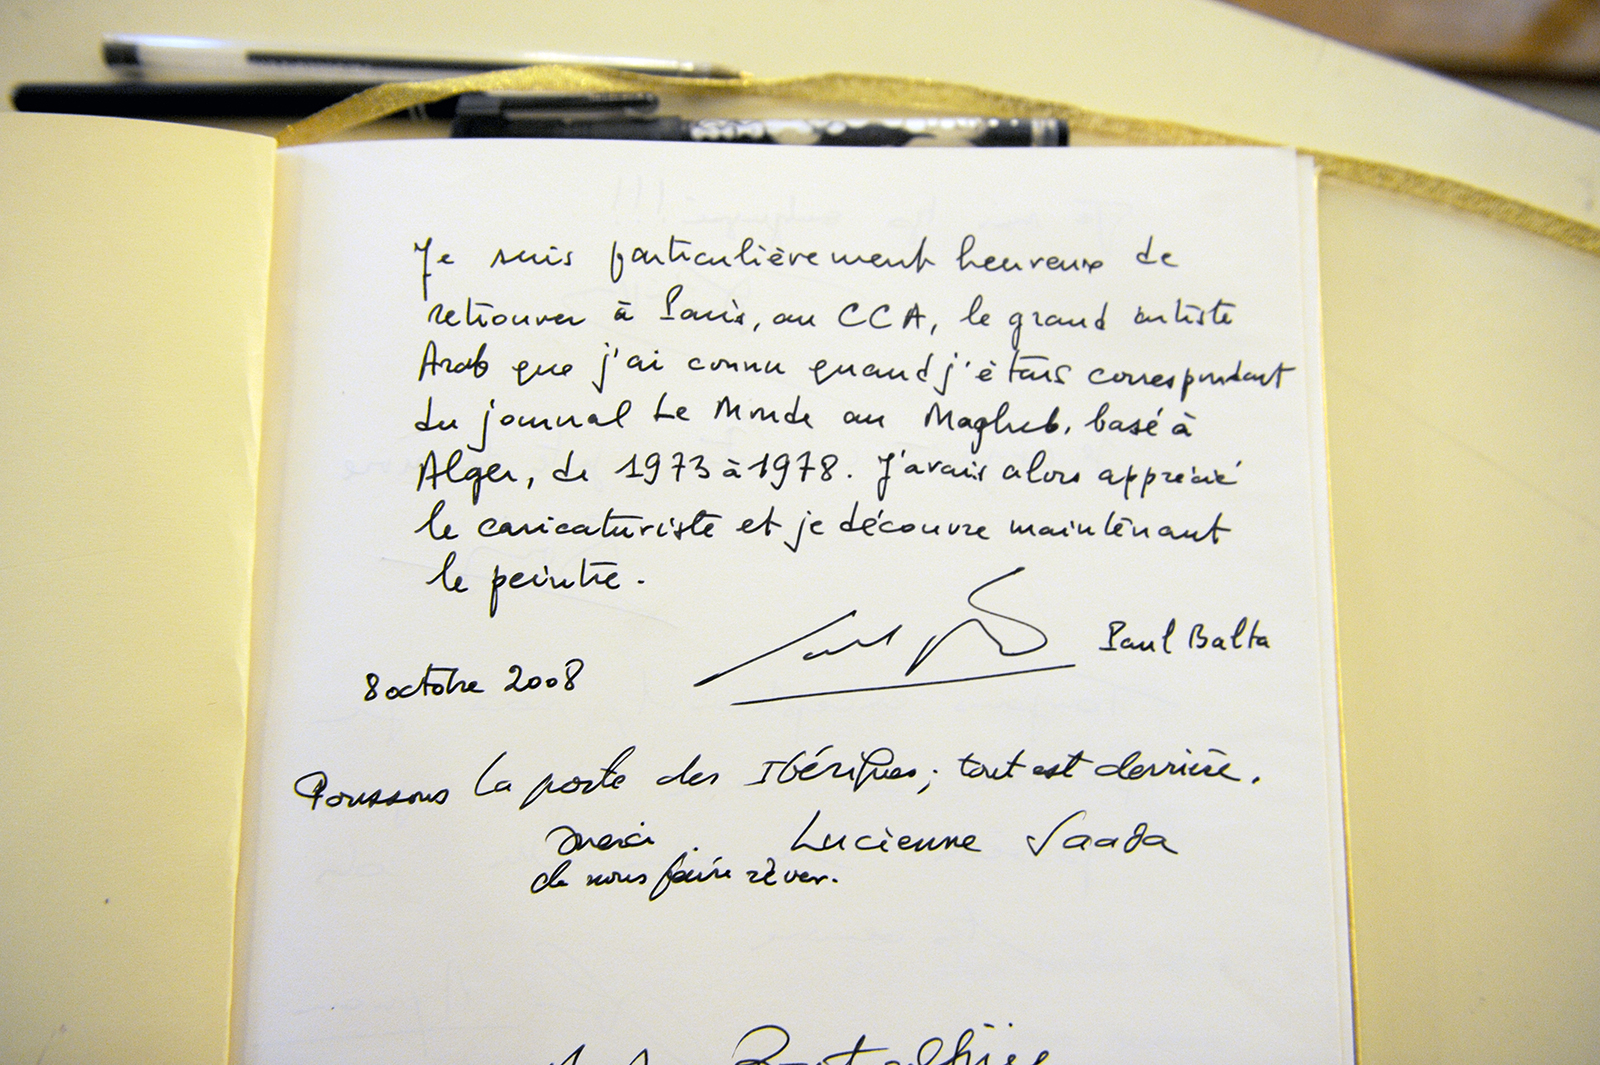 Je suis particulièrement heureux de
retrouver à Paris, au CCA, le grand artiste
Arab que j'ai connu quand j'étais correspondant
du journal Le Monde au Maghreb, basé à
Alger, de 1973 à 1978. J'avais alors apprécié
le caricaturiste et je découvre maintenant
le peintre.
Paul Balta
8 octobre 2008
Poussons la porte des Ibériques; tout est derrière.
merci. Lucienne Saada
de nous faire rêver.